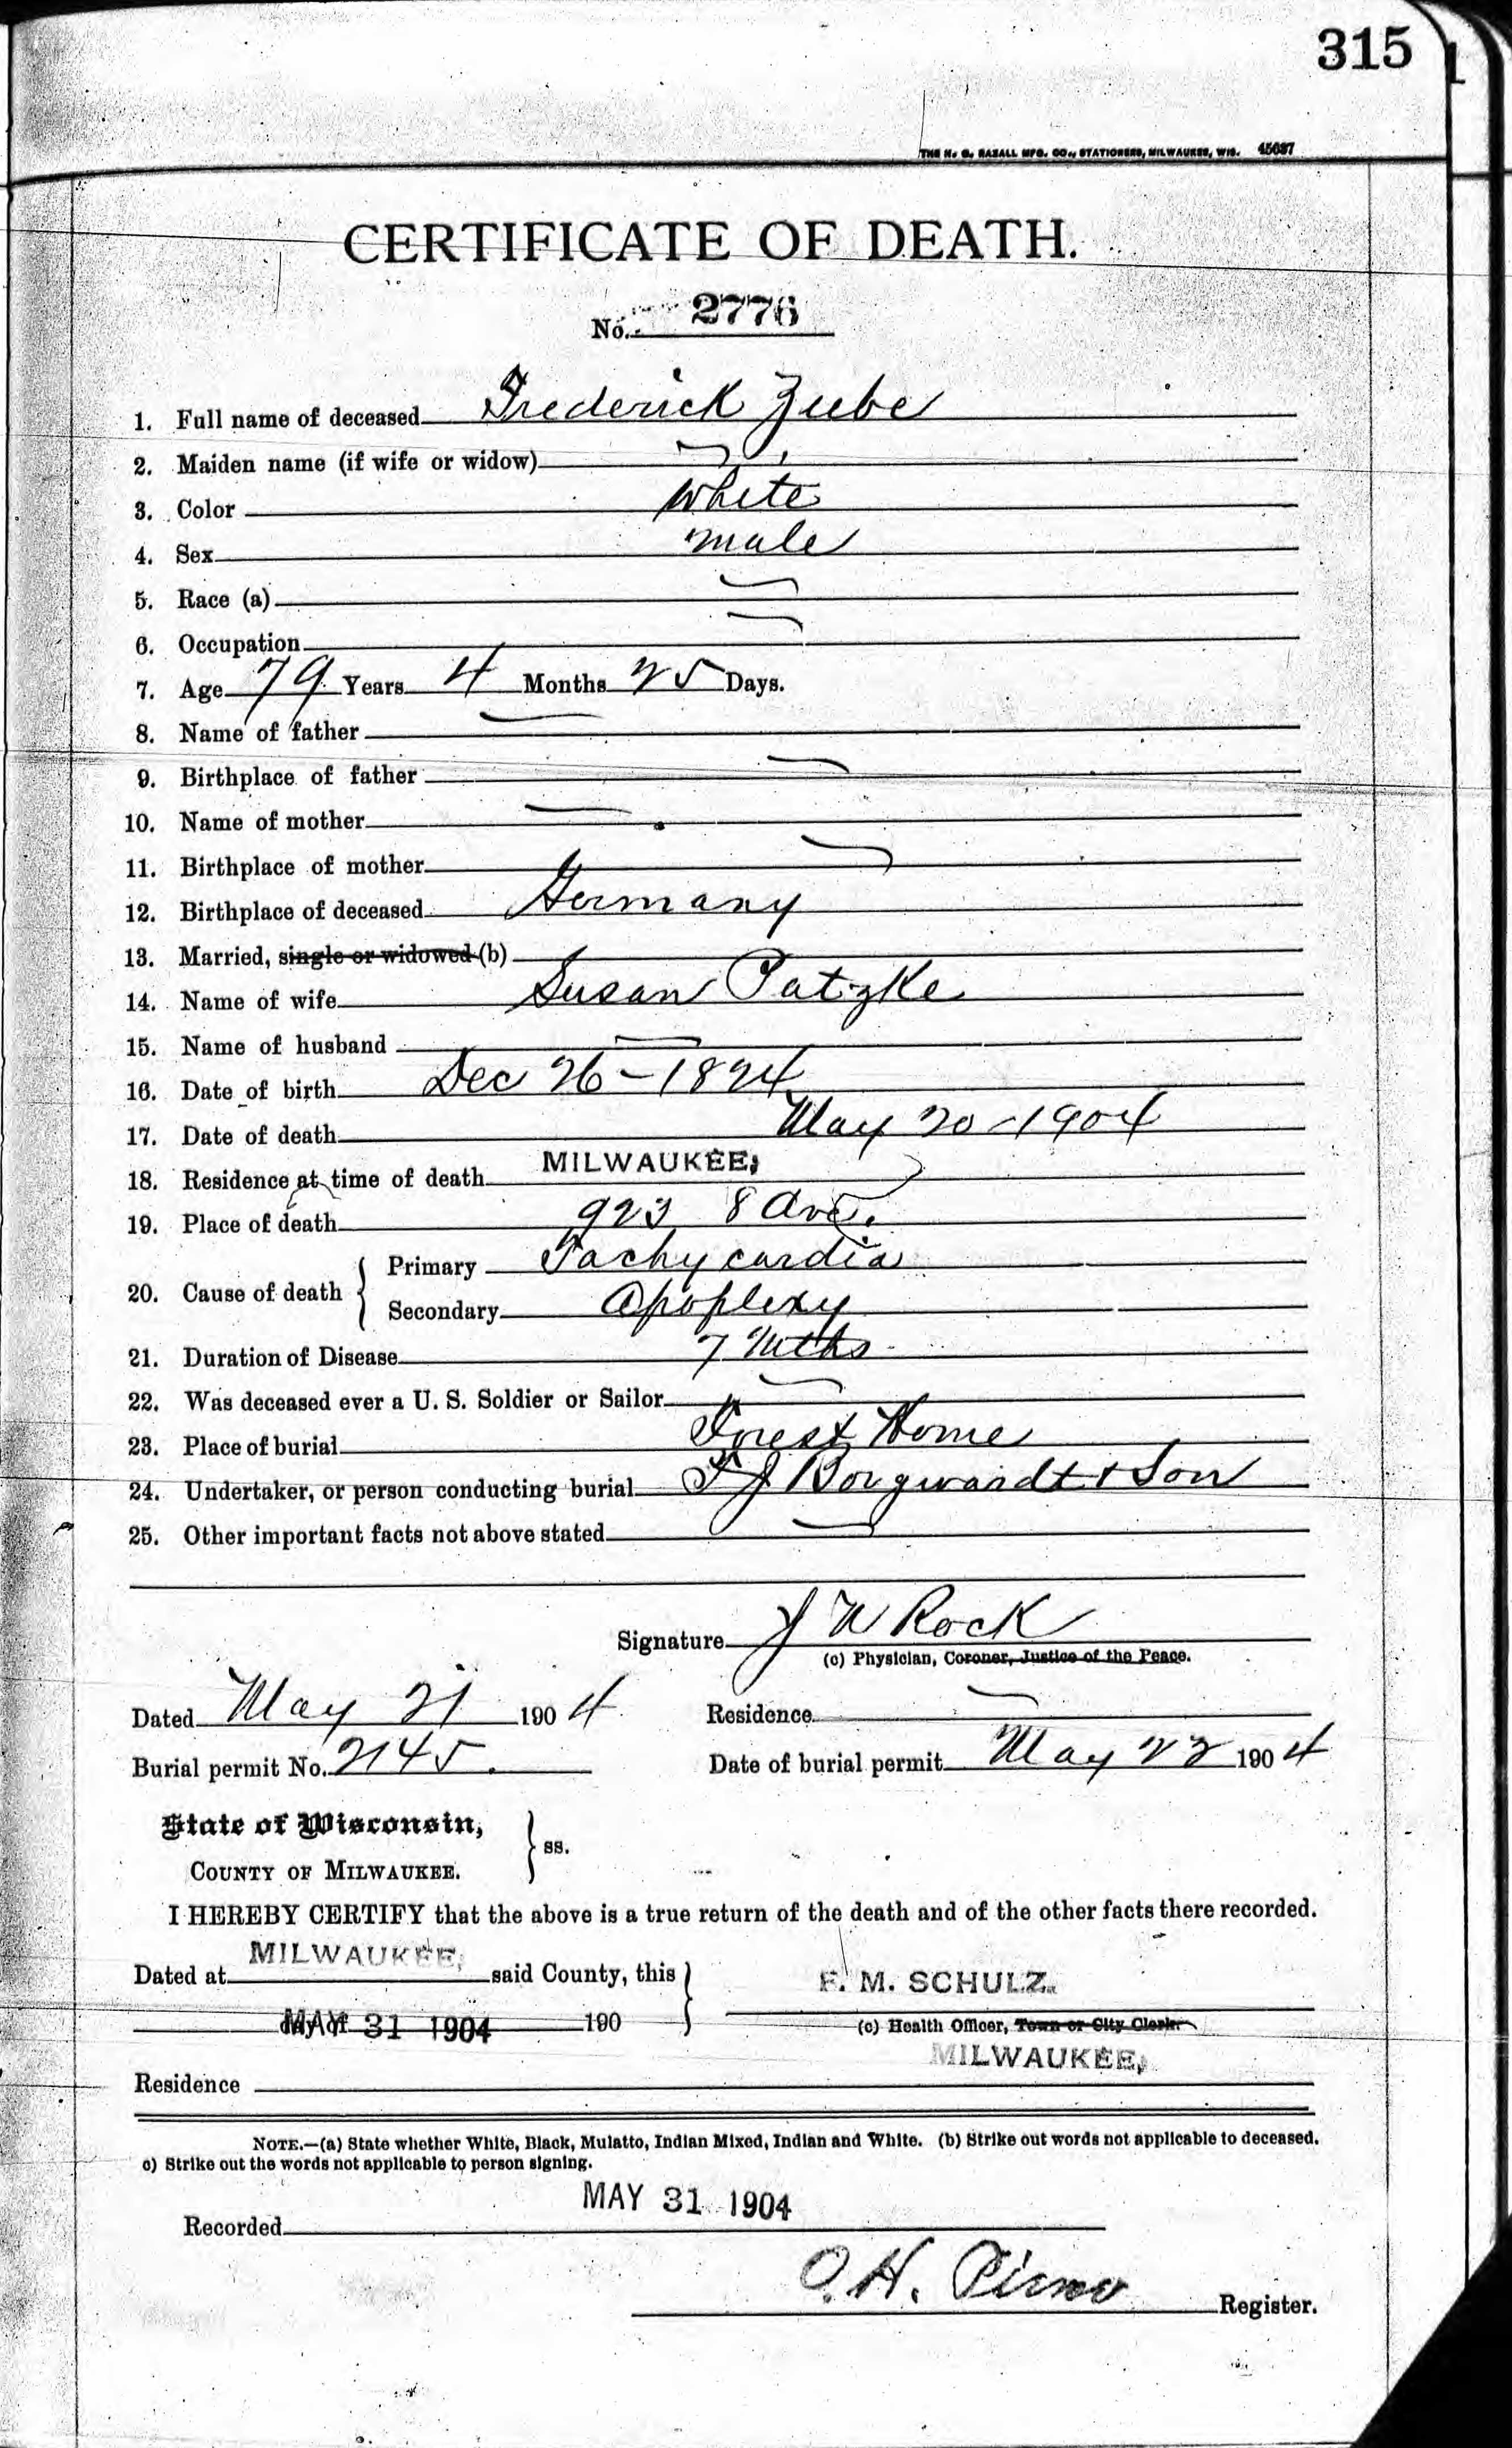 315
THE H. G. RAZALL MFG. CO., STATIONERS, MILWAUKEE, WIS. 45637
CERTIFICATE OF DEATH.
No. 2776
1. Full name of deceased Frederick Zube
2. Maiden name (if wife or widow)
3. Color White
4. Sex male
5. Race (a)
6. Occupation
7. Age 79 Years 4 Months 25 Days.
8. Name of father
9. Birthplace of father
10. Name of mother
11. Birthplace of mother
12. Birthplace of deceased Germany
13. Married, single or widowed (b)
14. Name of wife Susan Patzke
15. Name of husband
16. Date of birth Dec 26-1824
17. Date of death May 20-1904
18. Residence at time of death MILWAUKEE,
19. Place of death 923 8 Ave.
20. Cause of death { Primary Tachycardia
Secondary Apoplexy
21. Duration of Disease 7 Mths
22. Was deceased ever a U. S. Soldier or Sailor
23. Place of burial Forest Home
24. Undertaker, or person conducting burial F J Borgwardt & Son
25. Other important facts not above stated
Signature J W Rock
(c) Physician, Coroner, Justice of the Peace.
Dated May 21 1904 Residence
Burial permit No. 2145. Date of burial permit May 22 1904
State of Wisconsin, } ss.
COUNTY OF MILWAUKEE.
I HEREBY CERTIFY that the above is a true return of the death and of the other facts there recorded.
Dated at MILWAUKEE, said County, this } F. M. SCHULZ.
MAY 31 1904 190 (c) Health Officer, Town or City Clerk.
MILWAUKEE,
Residence
NOTE.—(a) State whether White, Black, Mulatto, Indian Mixed, Indian and White. (b) Strike out words not applicable to deceased.
c) Strike out the words not applicable to person signing.
MAY 31 1904
Recorded
O. H. Register.